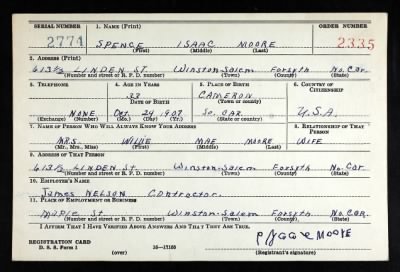 SERIAL NUMBER 1. NAME (Print) ORDER NUMBER
2774 SPENCE ISAAC MOORE 2335
(First) (Middle) (Last)
2. ADDRESS (Print)
613½ LINDEN ST. Winston-Salem Forsyth No. Car.
(Number and street or R. F. D. number) (Town) (County) (State)
3. TELEPHONE 4. AGE IN YEARS 5. PLACE OF BIRTH 6. COUNTRY OF CITIZENSHIP
33 CAMERON
DATE OF BIRTH (Town or county)
NONE Oct. 24 1907 So. CAR. U.S.A.
(Exchange) (Number) (Mo.) (Day) (Yr.) (State or country)
7. NAME OF PERSON WHO WILL ALWAYS KNOW YOUR ADDRESS 8. RELATIONSHIP OF THAT PERSON
MRS. WILLIE MAE MOORE WIFE
(Mr., Mrs., Miss) (First) (Middle) (Last)
9. ADDRESS OF THAT PERSON
613½ LINDEN St. Winston-Salem Forsyth No. Car.
(Number and street or R. F. D. number) (Town) (County) (State)
10. EMPLOYER'S NAME
James NELSON Contractor.
11. PLACE OF EMPLOYMENT OR BUSINESS
Maple St. Winston-Salem Forsyth No. CAR.
(Number and street or R. F. D. number) (Town) (County) (State)
I AFFIRM THAT I HAVE VERIFIED ABOVE ANSWERS AND THAT THEY ARE TRUE.
MOORE
REGISTRATION CARD
D. S. S. Form 1 (over) 16—17105 (Registrant's signature)